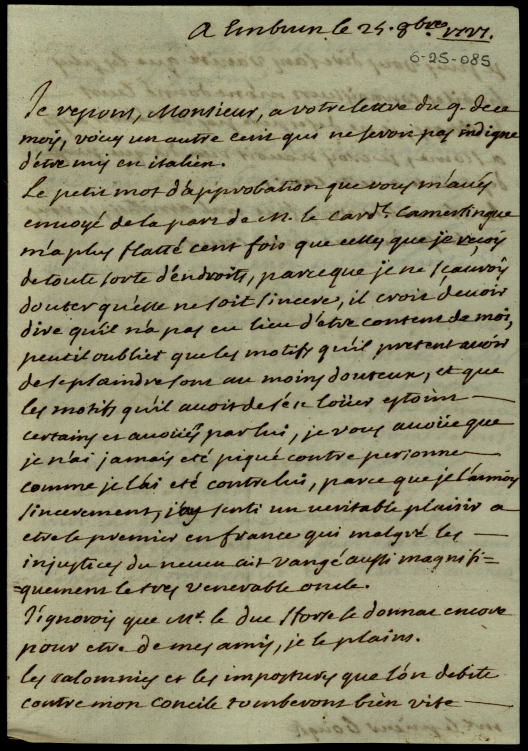 A Embrun le 25. 8bre 1727.
6-25-085
Je repons, Monsieur, a votre lettre du 9. de ce
mois, voicy un autre ecrit qui ne seroit pas indigne
d'être mis en italien.
Le petit mot d'approbation que vous m'avés
envoyé de la part de M. le Card.l Camerlingue
m'a plus flatté cent fois que celles que je reçois
de toute sorte d'endroits, parce que je ne sçaurois
douter qu'elle ne soit sincere, il croit devoir
dire qu'il n'a pas eu lieu d'être content de moi,
peut il oublier que les motifs qu'il pretent avoir
de se plaindre sont au moins douteux, et que
les motifs qu'il avoit de se loüer estoient
certains et avoüés par lui, je vous avoüe que
je n'ai jamais eté piqué contre personne
comme je l'ai eté contre lui, parce que je l'aimois
sincerement, j'ay senti un veritable plaisir a
etre le premier en france qui malgré les
injustices du neveu ait vangé aussi magnifi=
=quement le tres venerable oncle.
J'ignorois que Mr. le duc Sforse le donnat encore
pour etre de mes amis, je le plains.
les calomnies et les impostures que l'ón debite
contre mon Concile tomberont bien vite